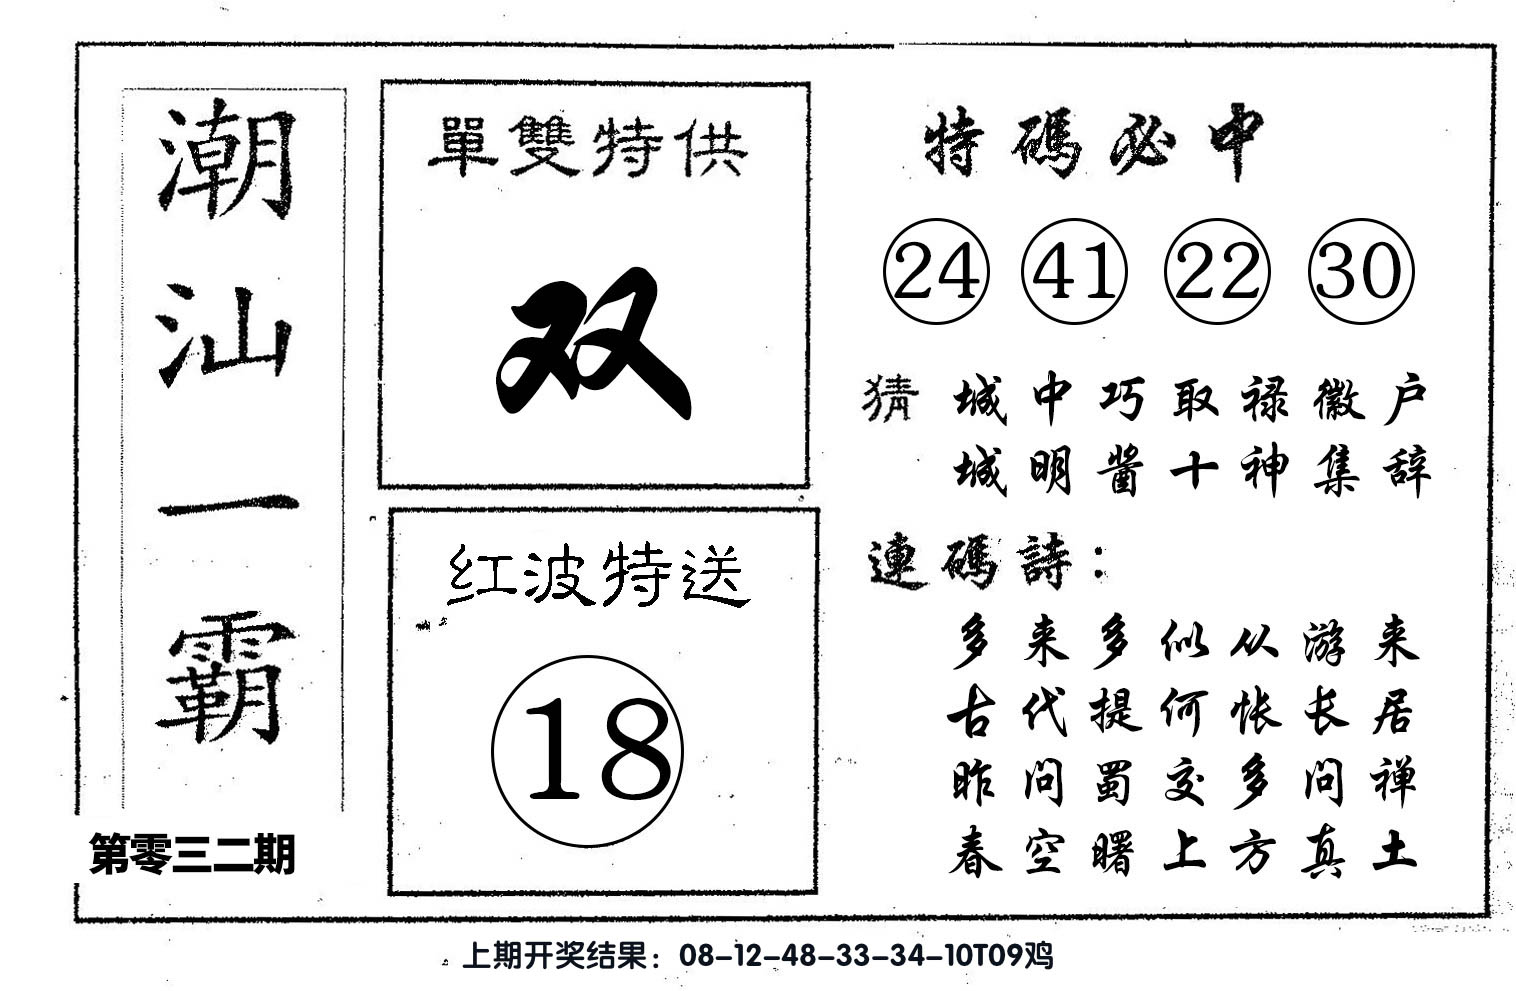 潮汕一霸
第零三二期
單雙特供
双
红波特送
18
特碼必中
24 41 22 30
猜 城中巧取禄徽户
城明酱十神集辞
連碼詩：
多来多似从游来
古代提何怅长居
昨问蜀交多问禅
春空曙上方真土
上期开奖结果：08-12-48-33-34-10T09鸡